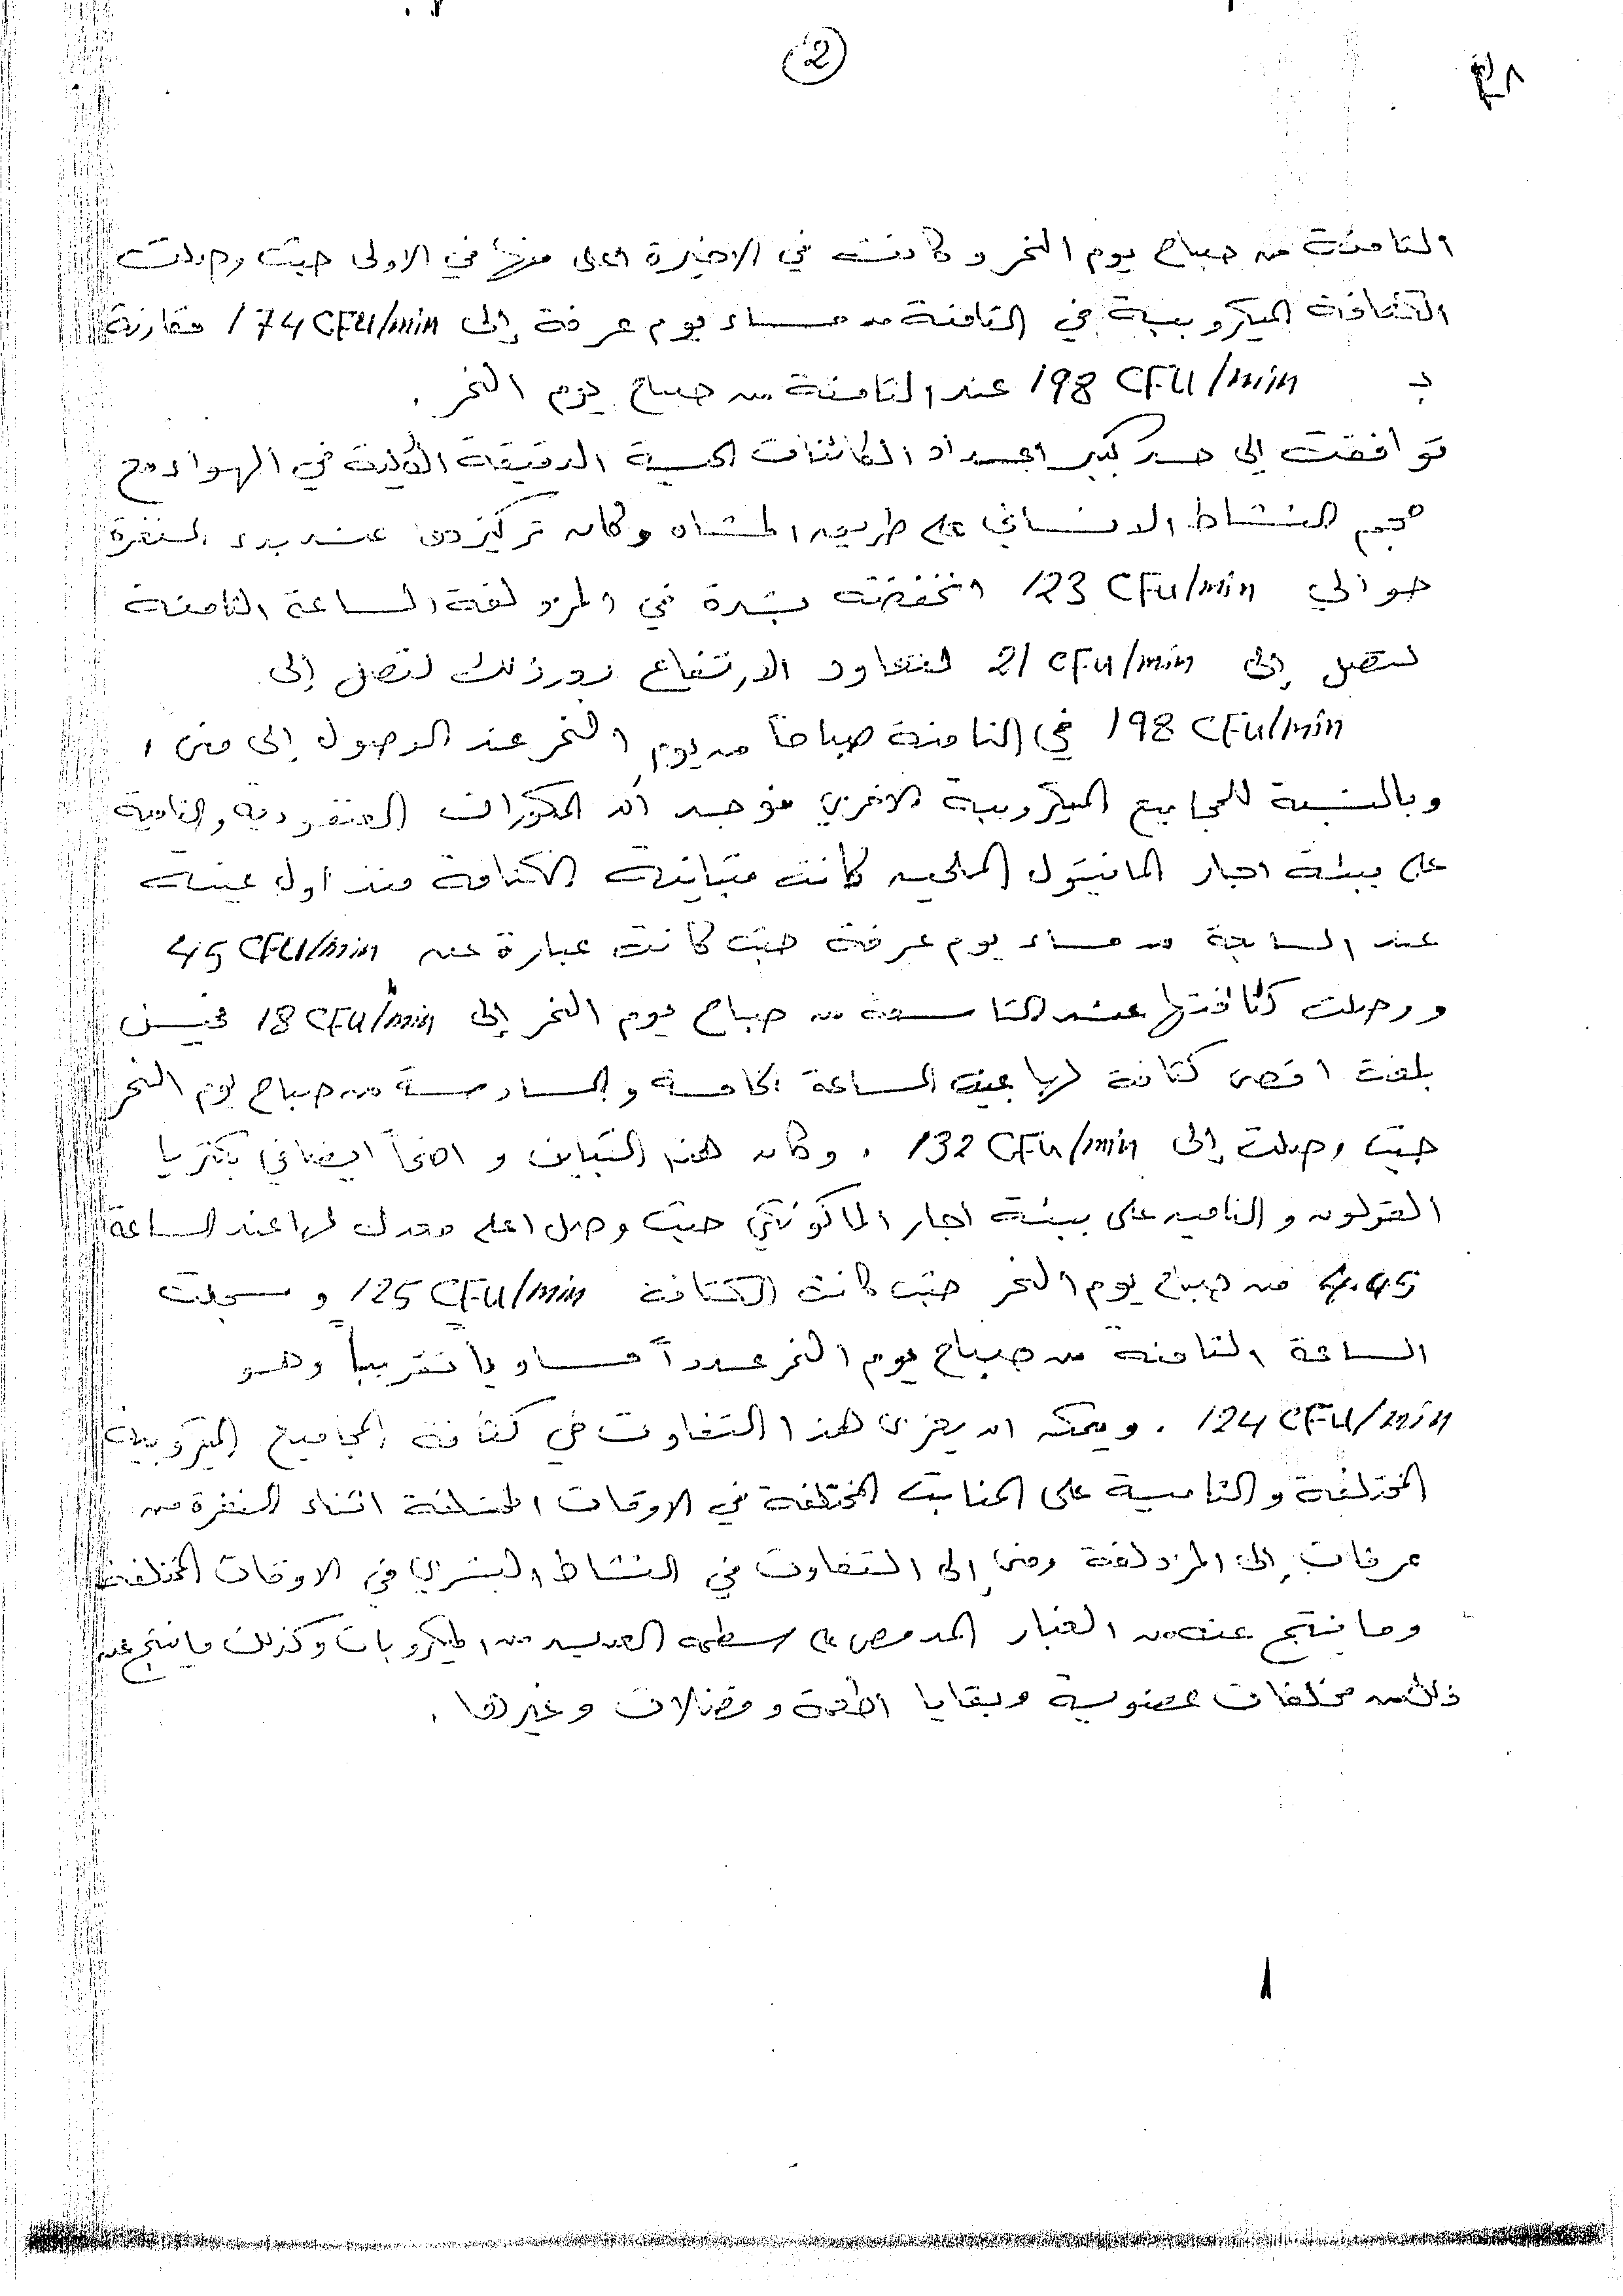 (2)
الثامنة من صباح يوم النحر وكانت في الاخيرة اعلى منها في الاولى حيث وصلت
الكثافة الميكروبية في الثامنة من مساء يوم عرفة إلى 174 CFU/min مقارنة
بـ 198 CFU/min عند الثامنة من صباح يوم النحر .
توافقت إلى حد كبير اعداد الكائنات الحية الدقيقة الكلية في الهواء مع
حجم النشاط الانساني على طريق المشاه وكان تركيزها عند بدء النفرة
حوالي 123 CFU/min انخفضت بشدة في المزدلفة الساعة الثامنة
لتصل إلى 21 CFU/min لتعاود الارتفاع بعد ذلك لتصل إلى
198 CFU/min في الثامنة صباحاً من يوم النحر عند الوصول إلى منى .
وبالنسبة للمجاميع الميكروبية الاخرى فوجد أن المكورات العنقودية والنامية
على بيئة اجار المانيتول الملحيه كانت متباينة الكثافة منذ أول عينة
عند السابعة من مساء يوم عرفة حيث كانت عبارة عن 45 CFU/min
ووصلت كثافتها عند التاسعة من صباح يوم النحر إلى 18 CFU/min في حين
بلغت اقصى كثافة لها عند الساعة الخامسة والسادسة من صباح يوم النحر
حيث وصلت إلى 132 CFU/min . وكان هذا التباين واضحاً ايضا في بكتريا
القولون والناميه على بيئة اجار الماكونكي حيث وصل اعلى معدل لها عند الساعة
4.45 من صباح يوم النحر حيث كانت الكثافة 125 CFU/min و سجلت
الساعة الثامنة من صباح يوم النحر عدداً مساوياً تقريباً وهو
124 CFU/min . ويمكن ان يعزى هذا التفاوت في كثافة المجاميع الميكروبية
المختلفة والنامية على المنابت المختلفة في الاوقات المختلفة اثناء النفرة من
عرفات إلى المزدلفة ومنى إلى التفاوت في النشاط البشري في الاوقات المختلفة
وما ينتج عنه من الغبار المدمص على سطحه العديد من الميكروبات وكذلك ما ينتج عن
ذلك من مخلفات عضوية وبقايا اطعمة وفضلات وغيرها .